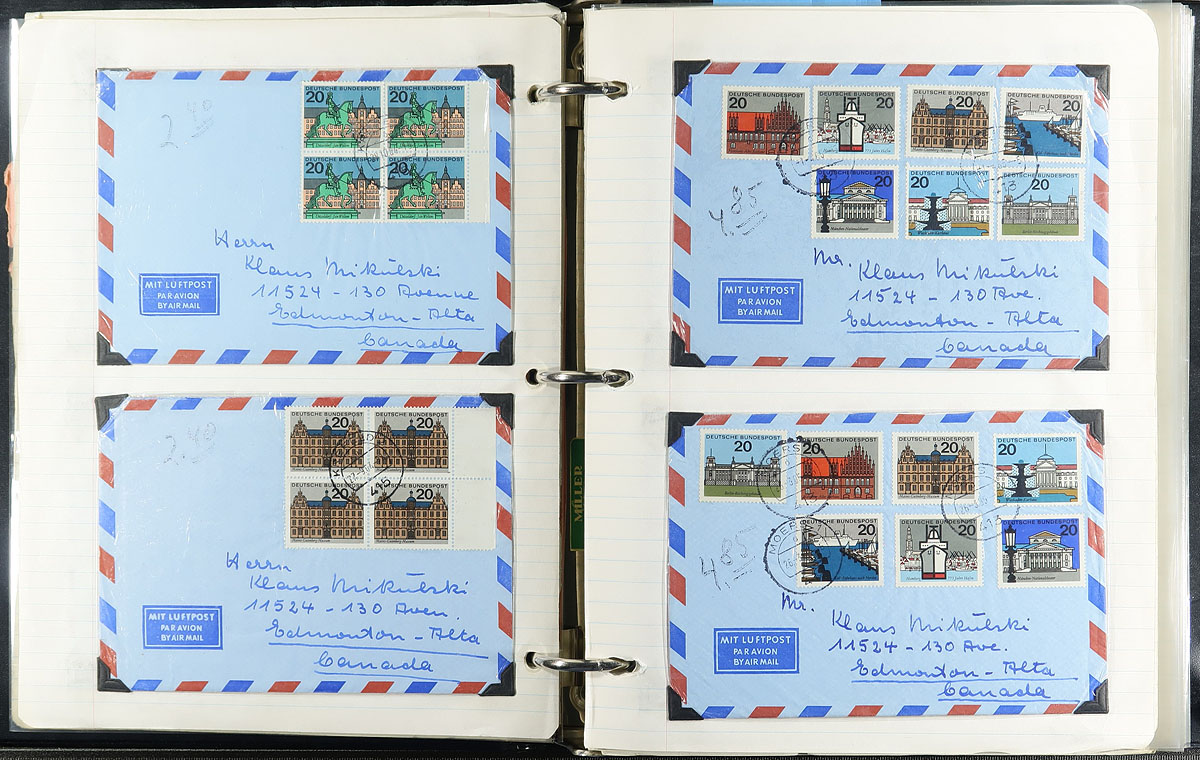 DEUTSCHE BUNDESPOST
20
DEUTSCHE BUNDESPOST
20
DEUTSCHE BUNDESPOST
20
DEUTSCHE BUNDESPOST
20
2 40
Herrn
Klaus Mikulski
11524 - 130 Avenue
Edmonton - Alta
Canada
MIT LUFTPOST
PAR AVION
BY AIR MAIL
DEUTSCHE BUNDESPOST
20
DEUTSCHE BUNDESPOST
20
DEUTSCHE BUNDESPOST
20
DEUTSCHE BUNDESPOST
20
2.40
415
Herrn
Klaus Mikulski
11524 - 130 Aven.
Edmonton - Alta
Canada
MIT LUFTPOST
PAR AVION
BY AIR MAIL
MILLER
DEUTSCHE BUNDESPOST
20
DEUTSCHE BUNDESPOST
20
DEUTSCHE BUNDESPOST
20
DEUTSCHE BUNDESPOST
20
DEUTSCHE BUNDESPOST
20
München Nationaltheater
DEUTSCHE BUNDESPOST
20
DEUTSCHE BUNDESPOST
20
Berlin Reichstagsgebäude
4.8-
Mr. Klaus Mikulski
11524 - 130 Ave.
Edmonton - Alta
Canada
MIT LUFTPOST
PAR AVION
BY AIR MAIL
DEUTSCHE BUNDESPOST
20
DEUTSCHE BUNDESPOST
20
DEUTSCHE BUNDESPOST
20
DEUTSCHE BUNDESPOST
20
DEUTSCHE BUNDESPOST
20
DEUTSCHE BUNDESPOST
20
DEUTSCHE BUNDESPOST
20
München Nationaltheater
Mr. Klaus Mikulski
11524 - 130 Ave.
Edmonton - Alta
Canada
MIT LUFTPOST
PAR AVION
BY AIR MAIL